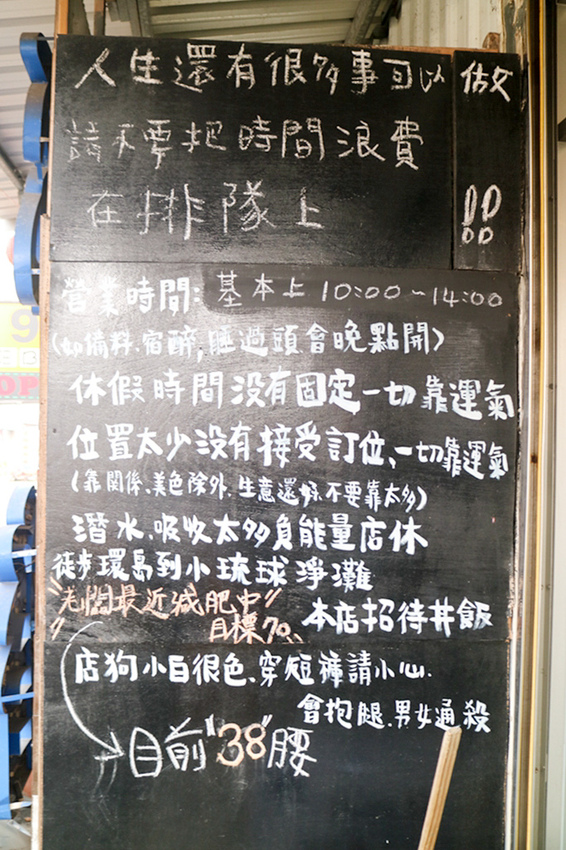 人生還有很多事可以做
請不要把時間浪費
在排隊上 !!
營業時間: 基本上 10:00~14:00
(如備料、宿醉,睡過頭會晚點開)
休假時間沒有固定一切靠運氣
位置太少沒有接受訂位、一切靠運氣
(靠關係、美色除外、生意還好、不要靠太多)
潛水、吸收太多負能量店休
徒步環島到小琉球淨灘
本店招待丼飯
"老闆最近減肥中"
目標70
店狗小白很色、穿短褲請小心.
會抱腿、男女通殺
目前"38"腰